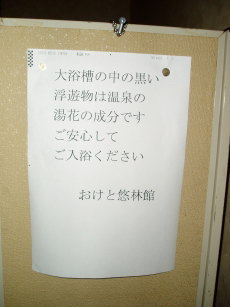 大浴槽の中の黒い
浮遊物は温泉の
湯花の成分です
ご安心して
ご入浴ください
おけと悠林館